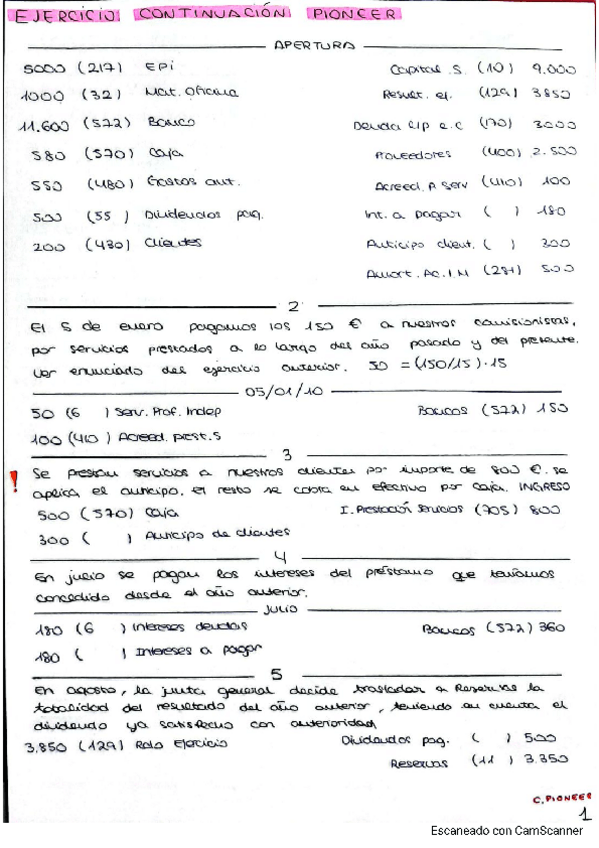 EJERCICIO CONTINUACIÓN PIONCER
APERTURA
5000 (217) EPi Capital S. (10) 9.000
1000 (32) Mat. Oficina Result. ej. (129) 3850
11.600 (572) Banco Deuda c/p e.c (170) 3000
580 (570) Caja Proveedores (400) 2.500
550 (480) Gastos ant. Acreed. P. Serv (410) 100
500 (55 ) Dividendos pag. Int. a pagar ( ) 180
200 (430) Clientes Anticipo client. ( ) 300
Amort. Ac. I.M (281) 500
2
El 5 de enero pagamos los 150 € a nuestros comisionistas,
por servicios prestados a lo largo del año pasado y del presente.
Ver enunciado del ejercicio anterior. 50 = (150/15)·15
05/01/10
50 (6 ) Serv. Prof. Indep Bancos (572) 150
100 (410) Acreed. prest. S
3
! Se prestan servicios a nuestros clientes por importe de 800 €. se
aplica el anticipo, el resto se cobra en efectivo por caja. INGRESO
500 (570) Caja I. Prestación Servicios (705) 800
300 ( ) Anticipo de clientes
4
En julio se pagan los intereses del préstamo que teníamos
concedido desde el año anterior.
Julio
180 (6 ) Intereses deudas Bancos (572) 360
180 ( ) Intereses a pagar
5
En agosto, la junta general decide trasladar a Reservas la
totalidad del resultado del año anterior, teniendo en cuenta el
dividendo ya satisfecho con anterioridad
3.850 (129) Rdo Ejercicio Dividendos pag. ( ) 500
Reservas (11 ) 3.350
C. PIONEER
1
Escaneado con CamScanner